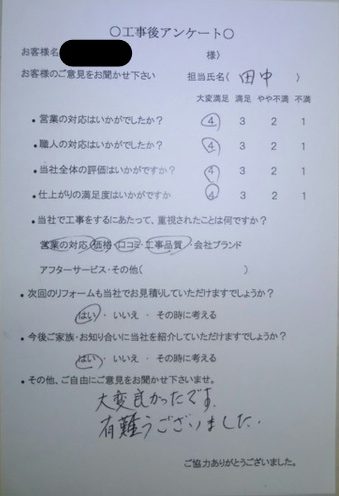 ○工事後アンケート○
お客様名 様)
お客様のご意見をお聞かせ下さい 担当氏名( 田中 )
大変満足 満足 やや不満 不満
・営業の対応はいかがでしたか? 4 3 2 1
・職人の対応はいかがでしたか? 4 3 2 1
・当社全体の評価はいかがですか? 4 3 2 1
・仕上がりの満足度はいかがですか 4 3 2 1
・当社で工事をするにあたって、重視されたことは何ですか?
営業の対応・価格・口コミ・工事品質・会社ブランド
アフターサービス・その他( )
・次回のリフォームも当社でお見積りしていただけますでしょうか?
はい ・ いいえ ・ その時に考える
・今後ご家族・お知り合いに当社を紹介していただけますでしょうか?
はい ・ いいえ ・ その時に考える
・その他、ご自由にご意見をお聞かせ下さいませ。
大変良かったです。
有難うございました。
ご協力ありがとうございました。